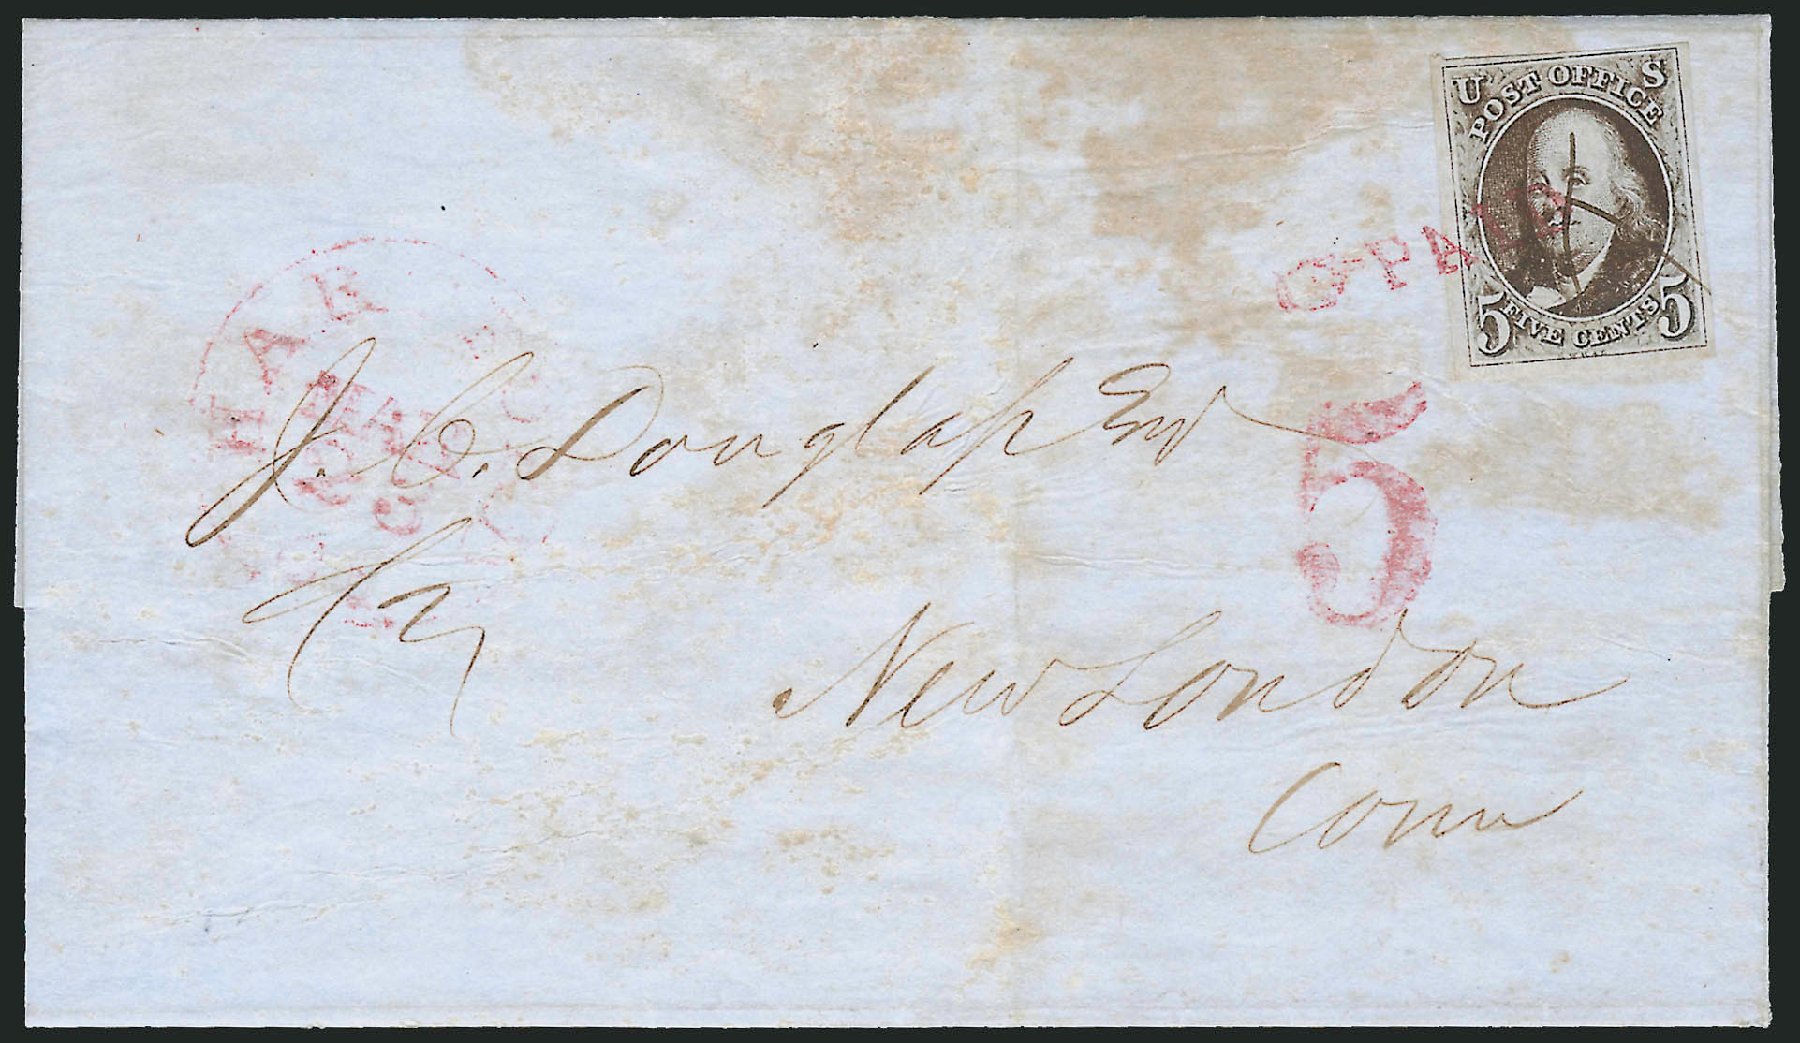 U S
POST OFFICE
5 FIVE CENTS 5
PAID
HAR
MAY
5
J. C. Douglass Esq
New London
Conn